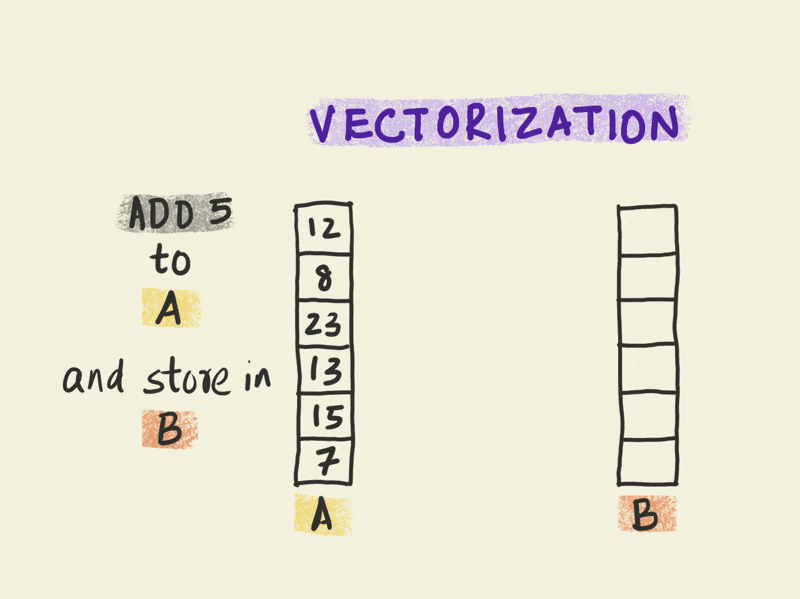 VECTORIZATION
ADD 5
to
A
and store in
B
12
8
23
13
15
7
A
B